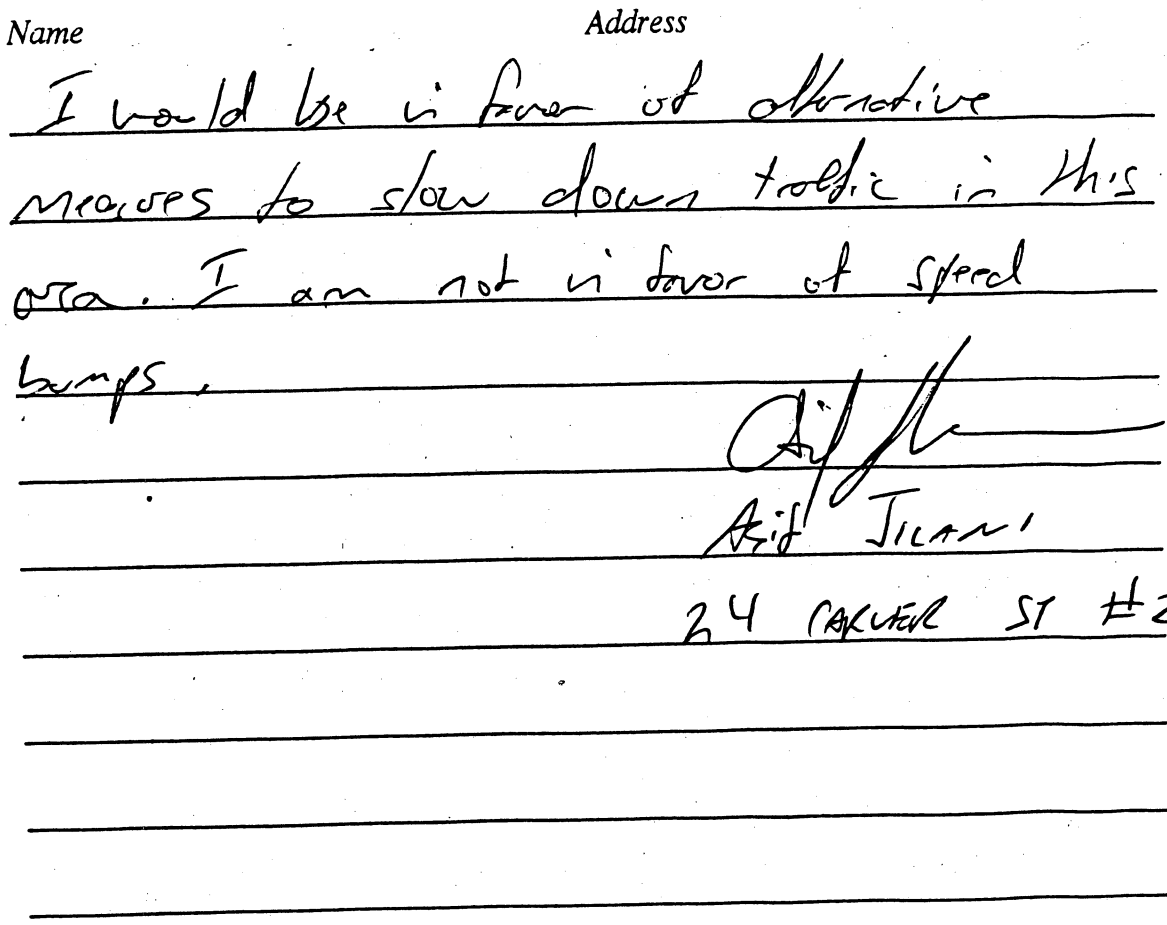 Name Address
I would be in favor of alternative
measures to slow down traffic in this
area. I am not in favor of speed
bumps.
Asif Jilani
24 CARVER ST #2